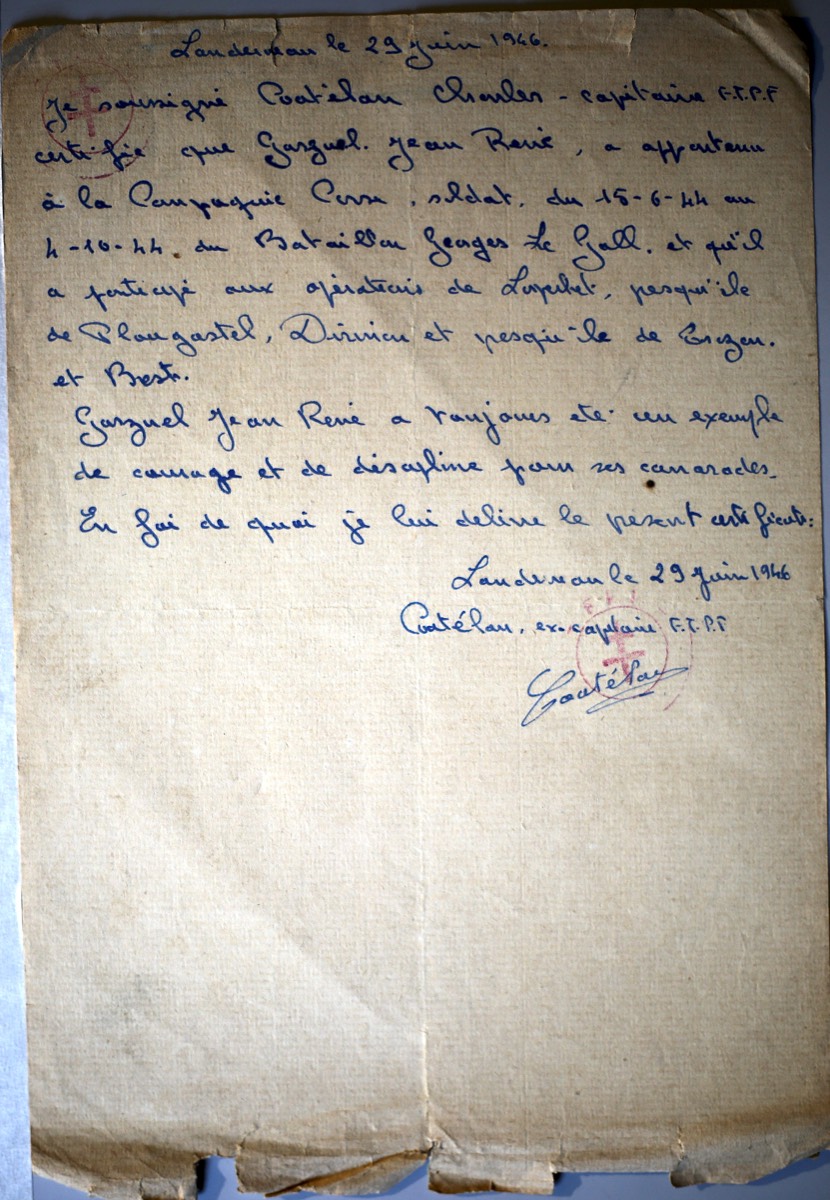 Landerneau le 29 Juin 1946.
Je soussigné Coatélan Charles - capitaine F.T.P.F
certifie que Garznel. Jean René, a appartenu
à la Compagnie Corse, soldat, du 15-6-44 au
4-10-44, du Bataillon Georges Le Gall. et qu'il
a participé aux opérations de Loperhet, presqu'ile
de Plougastel, Dirinon et presqu'ile de Crozon.
et Brest.
Garznel Jean René a toujours eté un exemple
de courage et de discipline pour ses camarades.
En foi de quoi je lui delivre le present certificat:
Landerneau le 29 Juin 1946
Coatélan, ex-capitaine F.T.P.F
F F I
Coatélan